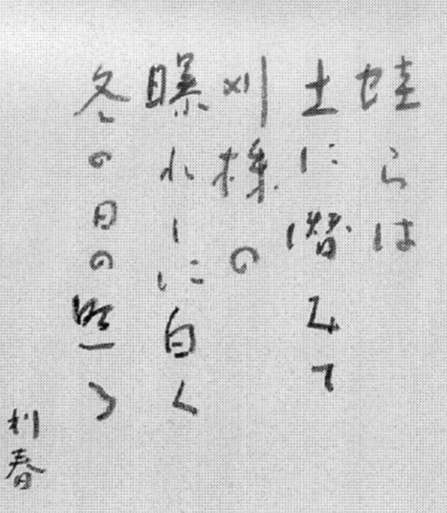 蛙らは
土に潜みて
刈株の
曝れしに白く
冬の日の照る
利春